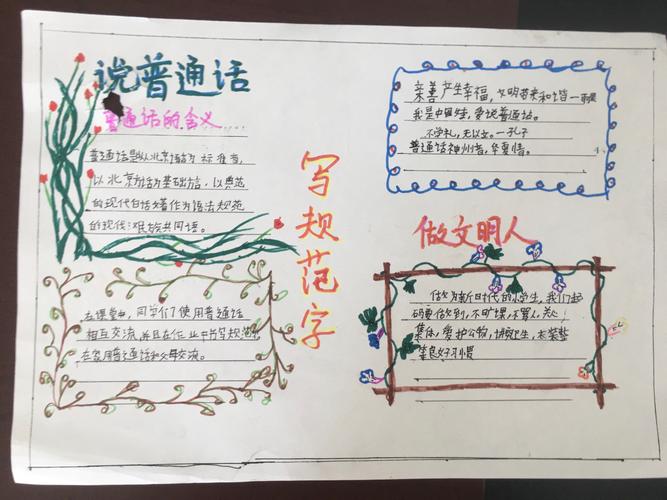 说普通话
普通话的含义
普通话是以北京语音为标准音,
以北京话为基础方言,以典范
的现代白话文著作为语法规范
的现代汉民族共同语。
写规范字
在课堂中,同学们使用普通话
相互交流,并且在作业中书写规范,
在家用普通话和父母交流。
亲善产生幸福,文明带来和谐一
我是中国娃,爱说普通话。
不学礼,无以立。一孔子
普通话神州音,华夏情。
做文明人
做为新时代的小学生,我们起
码要做到,不旷课,不骂人,关心
集体,爱护公物,讲卫生,衣装整
等良好习惯